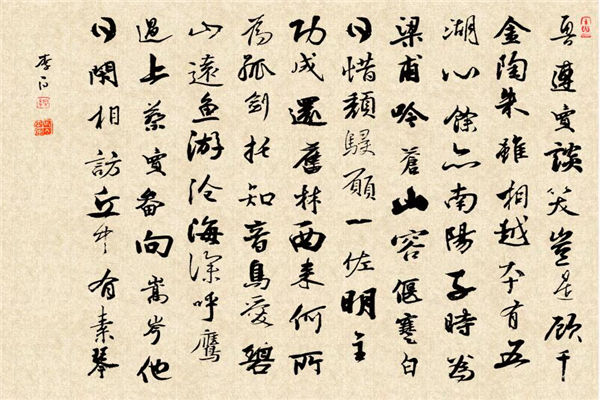 魯連賣談笑豈是顧千
金陶朱雖相越本有五
湖心餘亦南陽子時為
梁甫吟蒼山容偃蹇白
日惜頹駸願一佐明主
功成還舊林西來何所
為孤劍托知音鳥愛碧
山遠魚游滄海深呼鷹
過上蔡賣畚向嵩岑他
日閑相訪丘中有素琴
李白